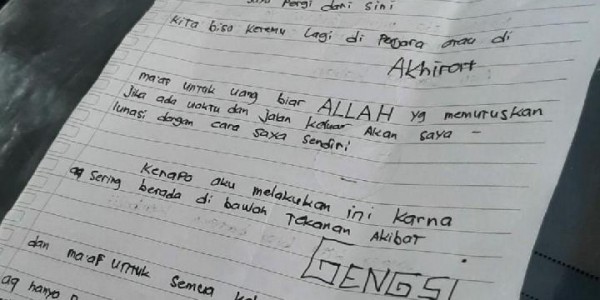 pergi dari sini
Kita bisa ketemu lagi di Penjara atau di
Akhirat
maaf untuk uang biar ALLAH yg memutuskan
Jika ada waktu dan jalan keluar Akan saya -
lunasi dengan cara saya sendiri
Kenapa aku melakukan ini karna
aq sering berada di bawah Tekanan Akibat
GENGSI
dan ma'af untuk semua
aq hanya